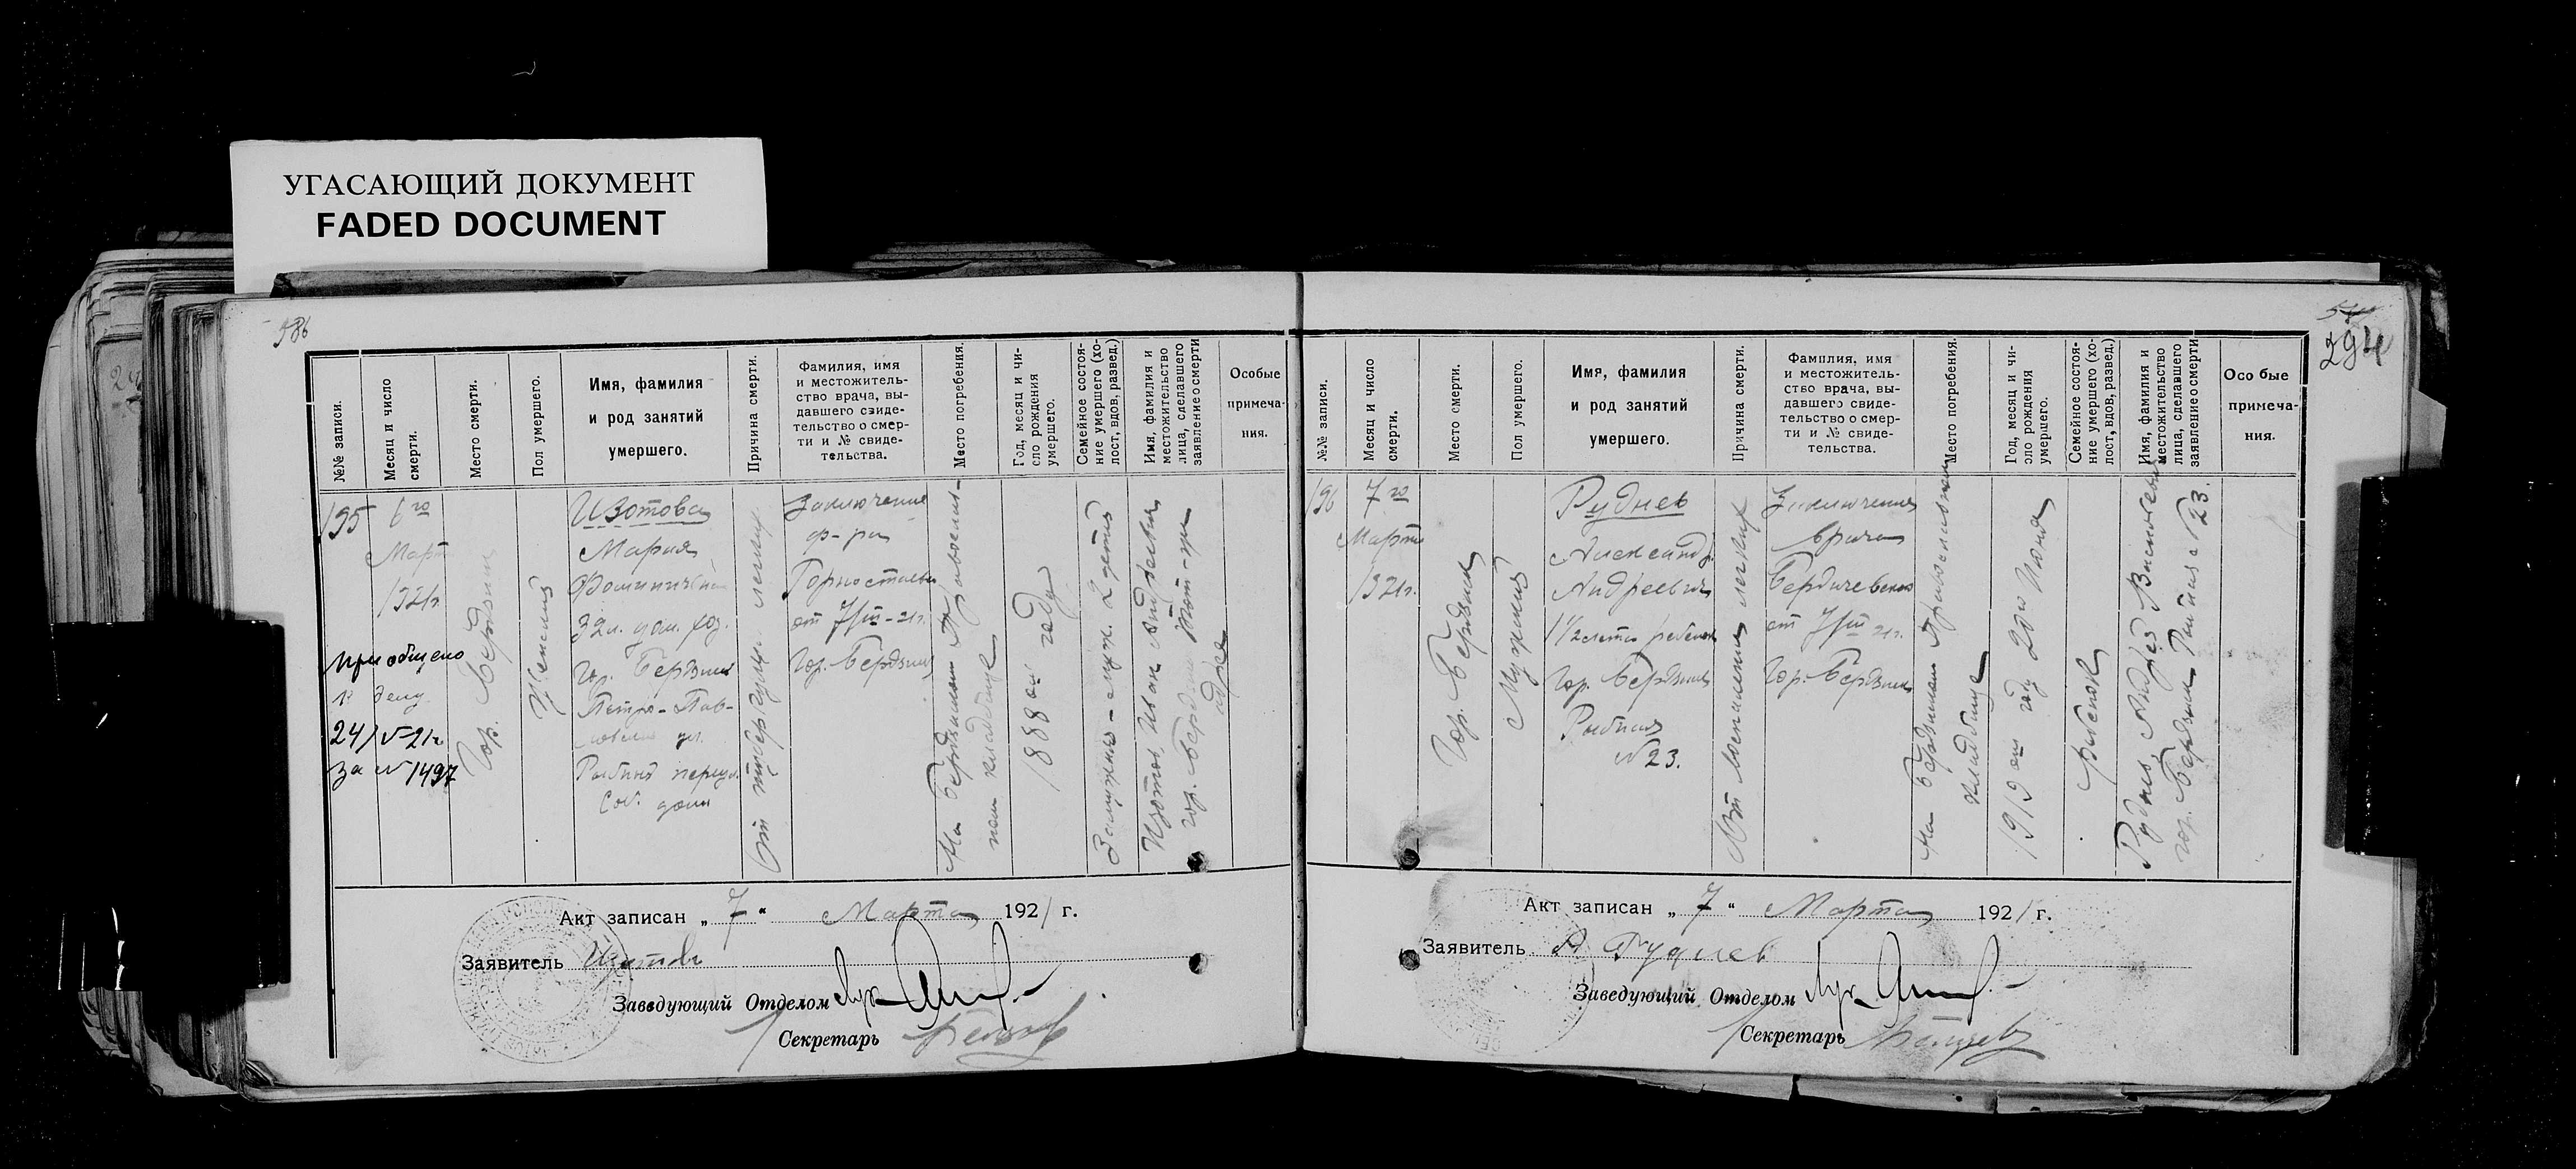 УГАСАЮЩИЙ ДОКУМЕНТ
FADED DOCUMENT
586
№№ записи.
Месяц и число
смерти.
Место смерти.
Пол умершего.
Имя, фамилия
и род занятий
умершего.
Причина смерти.
Фамилия, имя
и местожитель-
ство врача, вы-
давшего свиде-
тельство о смер-
ти и № свиде-
тельства.
Место погребения.
Год, месяц и чи-
сло рождения
умершего.
Семейное состоя-
ние умершего (хо-
лост, вдов, развед.)
Имя, фамилия и
местожительство
лица, сделавшего
заявление о смерти
Особые
примеча-
ния.
195
6го
Март
1921г.
приобщено
к делу
24/V 21г
за № 1497
Гор. Бердянск
Женский
Изотова
Мария
32л. дом. хоз.
Гор. Бердянск
Петро-Пав-
ловская ул.
Соб. дом
От туберкулеза легких
Заключение
ф-ра
Горностаева
от 7/III-21г.
Гор. Бердянск
На Бердянском Православ-
ном кладбище
1888 ом году
Замужняя - муж. 2 детей
Изотов, Иван Андреевич
гор. Бердянск тот-же
адрес
Акт записан „ 7 “ Марта 1921 г.
Заявитель Изотов
Заведующий Отделом
Секретарь
294
№№ записи.
Месяц и число
смерти.
Место смерти.
Пол умершего.
Имя, фамилия
и род занятий
умершего.
Причина смерти.
Фамилия, имя
и местожитель-
ство врача, вы-
давшего свиде-
тельство о смер-
ти и № свиде-
тельства.
Место погребения.
Год, месяц и чи-
сло рождения
умершего.
Семейное состоя-
ние умершего (хо-
лост, вдов, развед.)
Имя, фамилия и
местожительство
лица, сделавшего
заявление о смерти
Особые
примеча-
ния.
196
7го
Марта
1921г.
Гор. Бердянск
Мужский
Руднев
Александр
Андреевич
1 1/2 лета ребенок
Гор. Бердянск
Рыбная
№ 23.
От воспаления легких
Заключение
врача
Бердичевского
от 7/III 21г.
Гор. Бердянск
На Бердянском Православном
кладбище
1919 ом году 20го Июня
Ребенок
Руднев, Андрей Васильевич
гор. Бердянск Рыбная № 23.
Акт записан „ 7 “ Марта 1921 г.
Заявитель А Руднев
Заведующий Отделом
Секретарь